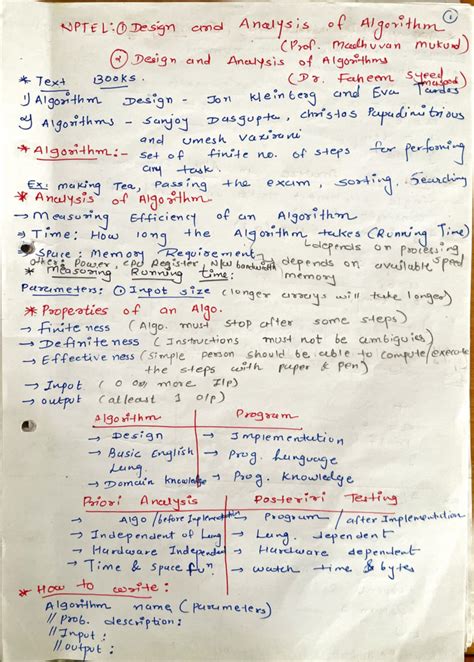 ①
NPTEL: ① Design and Analysis of Algorithm
(Prof. Madhuvan Mukund)
② Design and Analysis of Algorithms
(Dr. Faheem Syeed Masood)
* Text Books.
1) Algorithm Design - Jon Kleinberg and Eva Tardos
2) Algorithms - Sanjoy Dasgupta, Christos Papadimitrious
and Umesh Vazirani
* Algorithm:- Set of finite no. of steps for performing
any task.
Ex: making Tea, Passing the exam, sorting, Searching
* Analysis of Algorithm
→ Measuring Efficiency of an Algorithm
→ Time: How long the Algorithm takes (Running Time)
→ depends on processing speed
→ Space: Memory Requirement → depends on available memory
other: Power, CPU Register, N/W bandwidth
* Measuring Running time:
Parameters: ① Input size (longer arrays will take longer)
* Properties of an Algo.
→ Finiteness (Algo. must stop after some steps)
→ Definiteness (Instructions must not be ambiguies)
→ Effectiveness (Simple person should be able to compute/execute
the steps with paper & pen)
→ Input (0 or more I/p)
→ output (atleast 1 o/p)
Algorithm Program
→ Design → Implementation
→ Basic English Lang. → Prog. Language
→ Domain knowledge → Prog. knowledge
Priori Analysis Posteriri Testing
→ Algo /before Implementation → Program /after Implementation
→ Independent of Lang → Lang. dependent
→ Hardware Independent → Hardware dependent
→ Time & space fun. → watch time & bytes
* How to write:
Algorithm name (Parameters)
// Prob. description:
// Input:
// output: